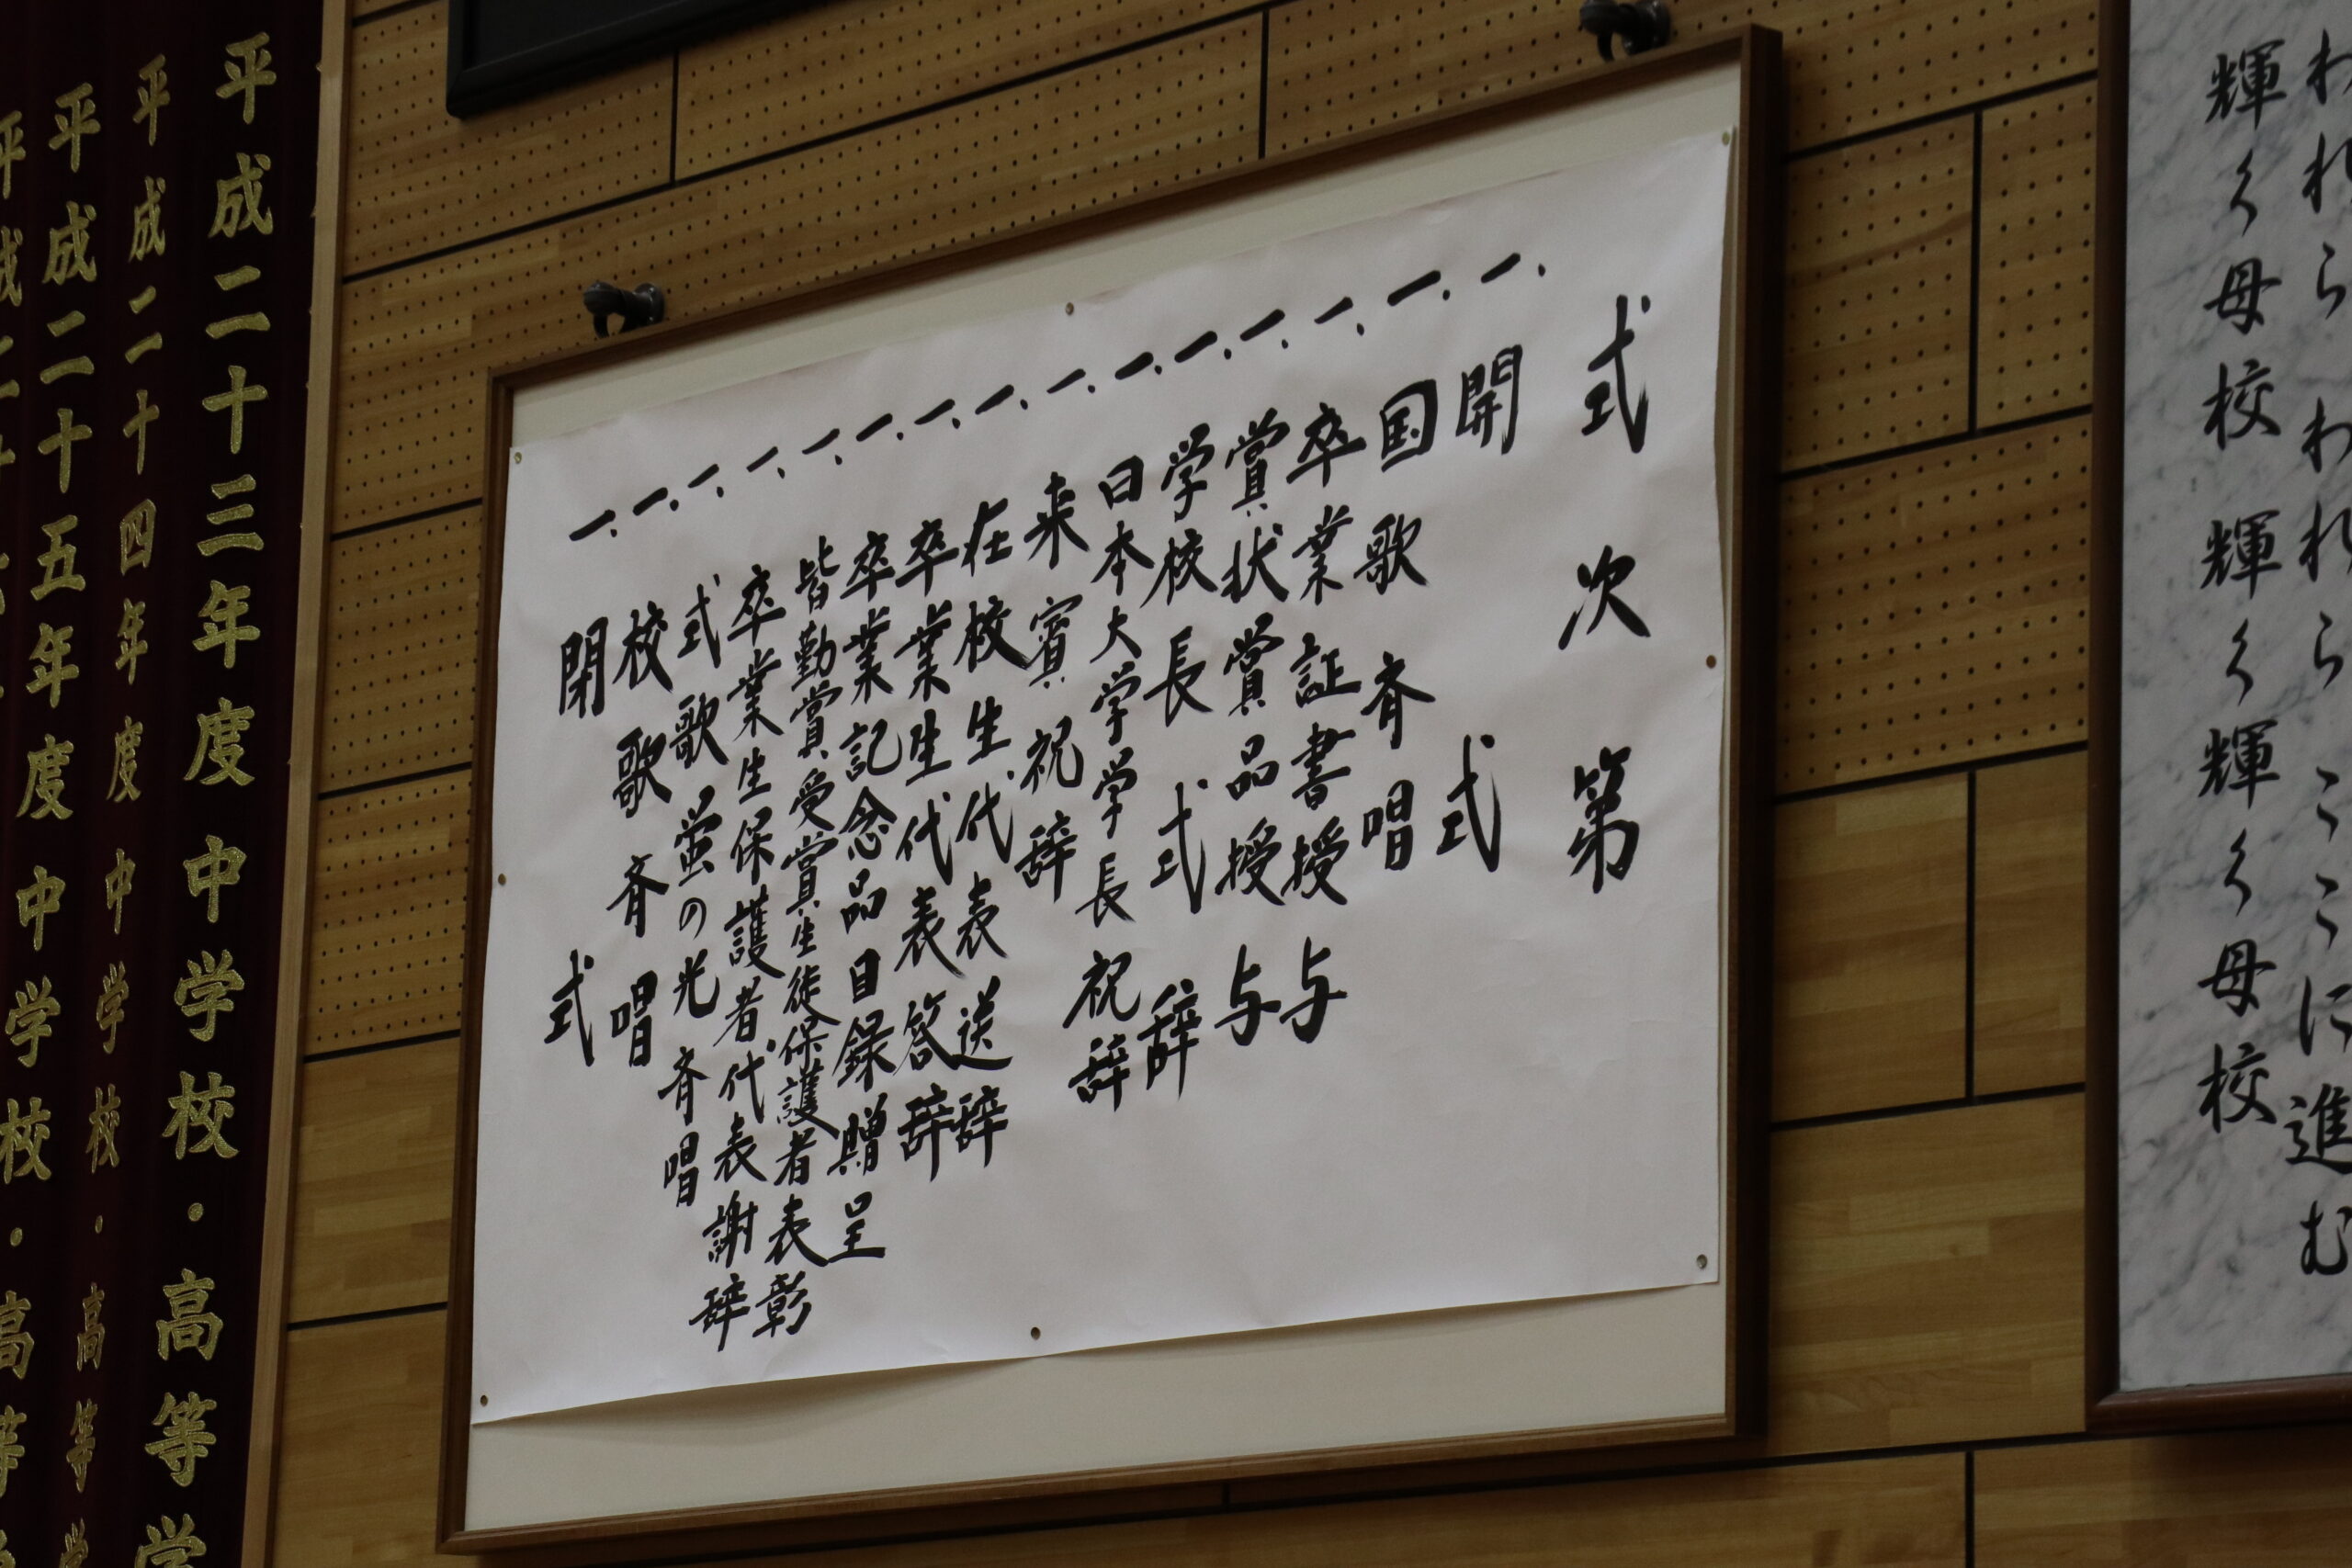 われらわれら ここに進む
輝く母校 輝く輝く母校
式次第
一、開式
一、国歌斉唱
一、卒業証書授与
一、賞状賞品授与
一、学校長式辞
一、日本大学学長祝辞
一、来賓祝辞
一、在校生代表送辞
一、卒業生代表答辞
一、卒業記念品目録贈呈
一、皆勤賞受賞生徒保護者表彰
一、卒業生保護者代表謝辞
一、式歌蛍の光斉唱
一、校歌斉唱
一、閉式
平成二十三年度 中学校・高等学
平成二十四年度 中学校・高等学
平成二十五年度 中学校・高等
平成二十